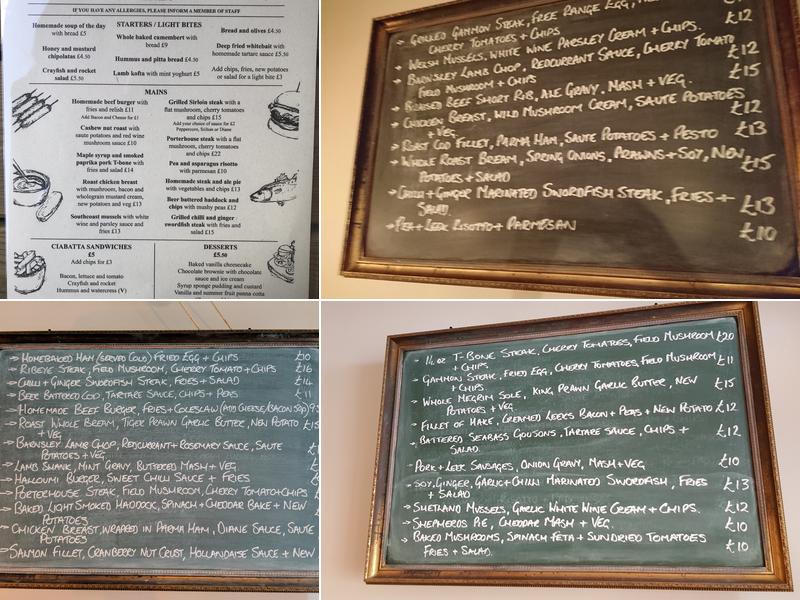 IF YOU HAVE ANY ALLERGIES, PLEASE INFORM A MEMBER OF STAFF
STARTERS / LIGHT BITES
Homemade soup of the day
with bread £5
Honey and mustard
chipolatas £4.50
Crayfish and rocket
salad £5.50
Whole baked camembert with
bread £9
Hummus and pitta bread £4.50
Lamb kofta with mint yoghurt £5
Bread and olives £4.50
Deep fried whitebait with
homemade tartare sauce £5.50
Add chips, fries, new potatoes
or salad for a light bite £3
MAINS
Homemade beef burger with
fries and relish £11
Add Bacon and Cheese for £1
Cashew nut roast with
saute potatoes and red wine
mushroom sauce £10
Maple syrup and smoked
paprika pork T-bone with
fries and salad £14
Roast chicken breast
with mushroom, bacon and
wholegrain mustard cream,
new potatoes and veg £13
Southcoast mussels with white
wine and parsley sauce and
fries £13
Grilled Sirloin steak with a
flat mushroom, cherry tomatoes
and chips £15
Add your choice of sauce for £2
Peppercorn, Stilton or Diane
Porterhouse steak with a flat
mushroom, cherry tomatoes
and chips £22
Pea and asparagus risotto
with parmesan £10
Homemade steak and ale pie
with vegetables and chips £13
Beer battered haddock and
chips with mushy peas £12
Grilled chilli and ginger
swordfish steak with fries and
salad £15
CIABATTA SANDWICHES
£5
Add chips for £3
Bacon, lettuce and tomato
Crayfish and rocket
Hummus and watercress (V)
DESSERTS
£5.50
Baked vanilla cheesecake
Chocolate brownie with chocolate
sauce and ice cream
Syrup sponge pudding and custard
Vanilla and summer fruit panna cotta
→ GRILLED GAMMON STEAK, FREE RANGE EGG,
CHERRY TOMATOES + CHIPS £12
→ WELSH MUSSELS, WHITE WINE PARSLEY CREAM + CHIPS. £12
→ BARNSLEY LAMB CHOP, REDCURRANT SAUCE, CHERRY TOMATO
FIELD MUSHROOM + CHIPS £15
→ BRAISED BEEF SHORT RIB, ALE GRAVY, MASH + VEG.
→ CHICKEN BREAST, WILD MUSHROOM CREAM, SAUTE POTATOES £12
+ VEG.
→ ROAST COD FILLET, PARMA HAM, SAUTE POTATOES + PESTO £13
→ WHOLE ROAST BREAM, SPRING ONIONS, PRAWNS + SOY, NEW £15
POTATOES + SALAD
→ CHILLI + GINGER MARINATED SWORDFISH STEAK, FRIES + £13
SALAD.
→ PEA + LEEK RISOTTO + PARMESAN £10
→ HOMEBAKED HAM (SERVED COLD) FRIED EGG + CHIPS £10
→ RIBEYE STEAK, FIELD MUSHROOM, CHERRY TOMATO + CHIPS £16
→ CHILLI + GINGER SWORDFISH STEAK, FRIES + SALAD £14
→ BEER BATTERED COD, TARTARE SAUCE, CHIPS + PEAS £11
→ HOMEMADE BEEF BURGER, FRIES + COLESLAW (ADD CHEESE/BACON 50p)
→ ROAST WHOLE BREAM, TIGER PRAWN GARLIC BUTTER, NEW POTATO
+ VEG
→ BARNSLEY LAMB CHOP, REDCURRANT + ROSEMARY SAUCE, SAUTE
POTATOES + VEG
→ LAMB SHANK, MINT GRAVY, BUTTERED MASH + VEG
→ HALLOUMI BURGER, SWEET CHILLI SAUCE + FRIES
→ PORTERHOUSE STEAK, FIELD MUSHROOM, CHERRY TOMATO + CHIPS
→ BAKED LIGHT SMOKED HADDOCK, SPINACH + CHEDDAR BAKE + NEW
POTATOES
→ CHICKEN BREAST, WRAPPED IN PARMA HAM, DIANE SAUCE, SAUTE
POTATOES
→ SALMON FILLET, CRANBERRY NUT CRUST, HOLLANDAISE SAUCE + NEW
→ 14 OZ T-BONE STEAK, CHERRY TOMATOES, FIELD MUSHROOM £20
+ CHIPS
→ GAMMON STEAK, FRIED EGG, CHERRY TOMATOES, FIELD MUSHROOM £11
+ CHIPS.
→ WHOLE MEGRIM SOLE, KING PRAWN GARLIC BUTTER, NEW £15
POTATOES + VEG
→ FILLET OF HAKE, CREAMED LEEKS BACON + PEAS + NEW POTATO £12
→ BATTERED SEABASS GOUJONS, TARTARE SAUCE, CHIPS + £12
SALAD.
→ PORK + LEEK SAUSAGES, ONION GRAVY, MASH + VEG £10
→ SOY, GINGER, GARLIC + CHILLI MARINATED SWORDFISH, FRIES £13
+ SALAD
→ SHETLAND MUSSELS, GARLIC WHITE WINE CREAM + CHIPS. £12
→ SHEPHERDS PIE, CHEDDAR MASH + VEG. £10
→ BAKED MUSHROOMS, SPINACH FETA + SUNDRIED TOMATOES £10
FRIES + SALAD.